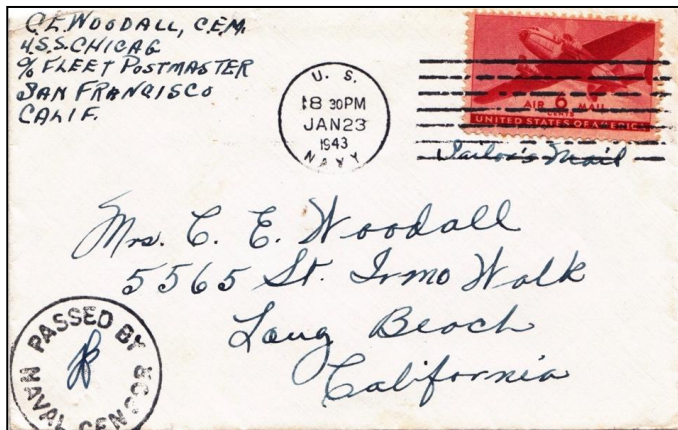 C.E. WOODALL, C.E.M.
U.S.S. CHICAG
℅ FLEET POSTMASTER
SAN FRANCISCO
CALIF.
U. S.
18 30PM
JAN 23
1943
NAVY
AIR 6 MAIL
CENTS
UNITED STATES OF AMERICA
Sailor's Mail
Mrs. C. E. Woodall
5565 St. Irmo Walk
Long Beach
California
PASSED BY
NAVAL CENSOR